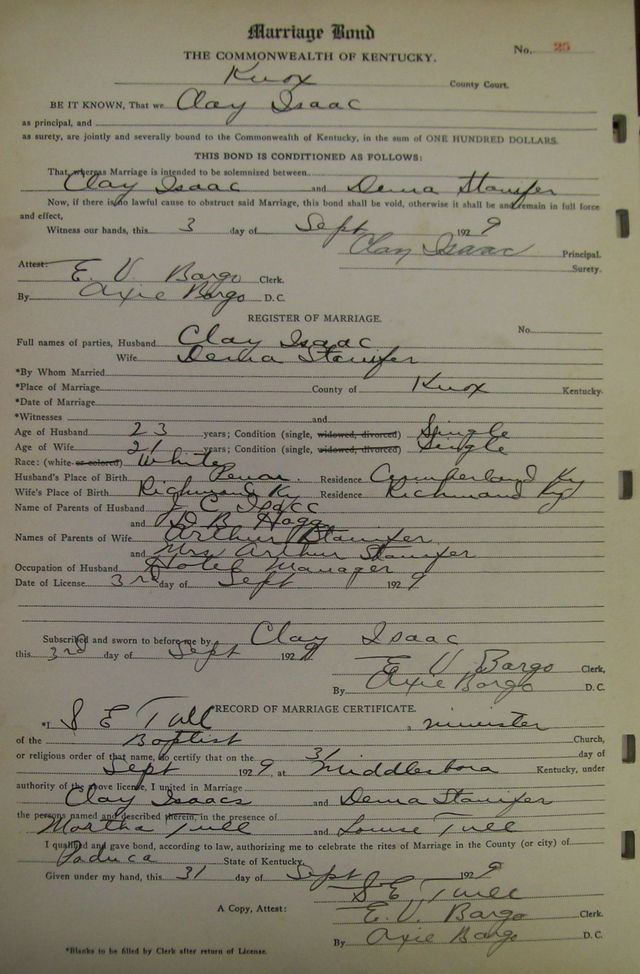 Marriage Bond
THE COMMONWEALTH OF KENTUCKY. No. 25
Knox County Court.
BE IT KNOWN, That we Clay Isaac
as principal, and
as surety, are jointly and severally bound to the Commonwealth of Kentucky, in the sum of ONE HUNDRED DOLLARS.
THIS BOND IS CONDITIONED AS FOLLOWS:
That, whereas Marriage is intended to be solemnized between
Clay Isaac and Dema Stanifer
Now, if there is no lawful cause to obstruct said Marriage, this bond shall be void, otherwise it shall be and remain in full force
and effect,
Witness our hands, this 3 day of Sept 1929
Clay Isaac Principal.
Surety.
Attest: E. V. Bargo Clerk.
By Axie Bargo D.C.
REGISTER OF MARRIAGE.
No.
Full names of parties, Husband Clay Isaac
Wife Dema Stanifer
*By Whom Married
*Place of Marriage County of Knox Kentucky.
*Date of Marriage
*Witnesses and
Age of Husband 23 years; Condition (single, widowed, divorced) Single
Age of Wife 21 years; Condition (single, widowed, divorced) Single
Race: (white or colored) White
Husband's Place of Birth Residence Cumberland Ky
Wife's Place of Birth Richmond Ky Residence Richmond Ky
Name of Parents of Husband C Isacc
and D. B. Hogg
Names of Parents of Wife Arthur Stanifer
and Mrs Arthur Stanifer
Occupation of Husband Hotel Manager
Date of License 3rd day of Sept 1929
Subscribed and sworn to before me by Clay Isaac
this 3rd day of Sept 1929
E V Bargo Clerk,
By Axie Bargo D.C.
RECORD OF MARRIAGE CERTIFICATE.
*I S E Tull, a minister
of the Baptist Church,
or religious order of that name, do certify that on the 31 day of
Sept 1929, at Middlesboro Kentucky, under
authority of the above license, I united in Marriage
Clay Isaacs and Dema Stanifer
the persons named and described therein, in the presence of
Martha Tull and Louise Tull
I qualified and gave bond, according to law, authorizing me to celebrate the rites of Marriage in the County (or city) of
Paduca State of Kentucky.
Given under my hand, this 31 day of Sept 1929
S E, Tull
A Copy, Attest: E. V. Bargo Clerk.
By Axie Bargo D.C.
*Blanks to be filled by Clerk after return of License.